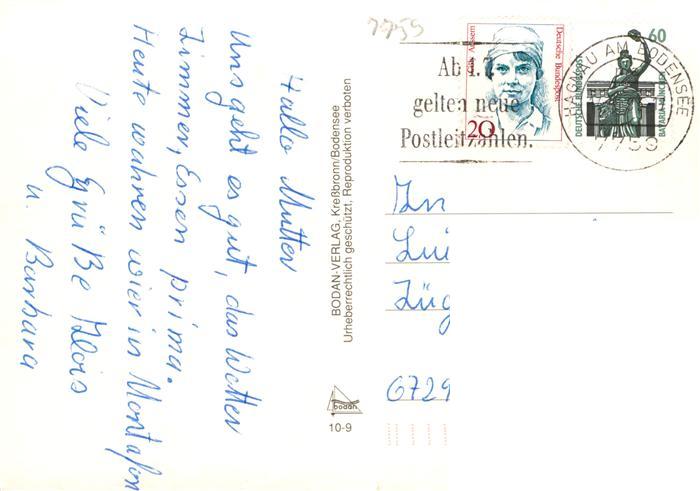 Hallo Mutter
Uns geht es gut, das Wetter
Zimmer, Essen prima.
Heute wahren wier in Montafon
Viele Grüße Alois
u. Barbara
BODAN-VERLAG, Kreßbronn/Bodensee
Urheberrechtlich geschützt, Reproduktion verboten
bodan
10-9
7759
Ab 1.7
gelten neue
Postleitzahlen.
Deutsche Bundespost
20
60
DEUTSCHE BUNDESPOST
BAVARIA MÜNCHEN
HAGNAU AM BODENSEE
7759
Lui
Züg
6729